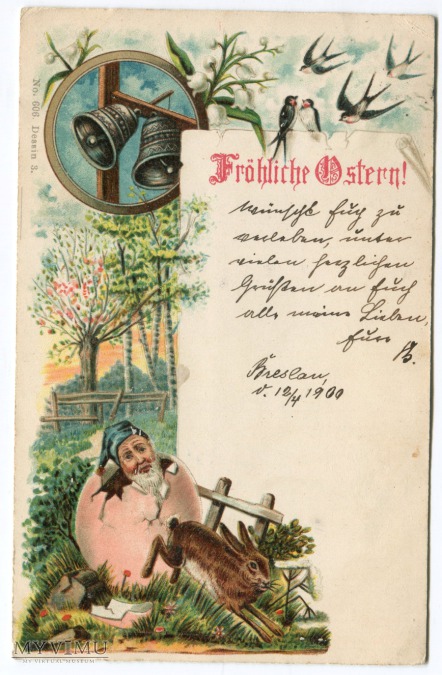 No. 606. Dessin 3.
Fröhliche Ostern!
wünscht Euch zu
verleben, unter
vielen herzlichen
Grüßen an Euch
alle meine Lieben,
Eure
Breslau,
d. 12/4 1900
MYVIMU
MY VIRTUAL MUSEUM